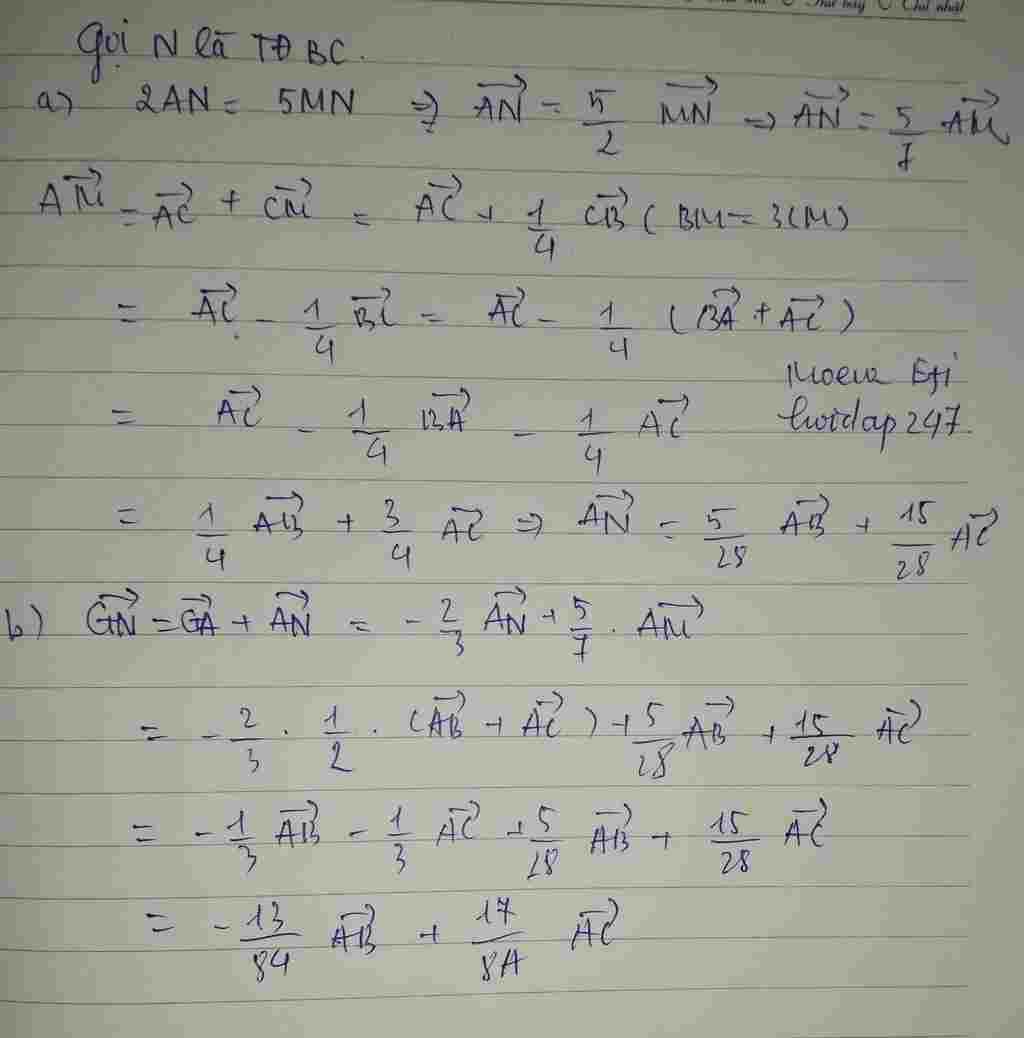 Thứ bảy Chủ nhật
Gọi N là TĐ BC.
a) 2AN = 5MN => \overrightarrow{AN} = \frac{5}{2} \overrightarrow{MN} => \overrightarrow{AN} = \frac{5}{7} \overrightarrow{AM}
\overrightarrow{AM} = \overrightarrow{AC} + \overrightarrow{CM} = \overrightarrow{AC} + \frac{1}{4} \overrightarrow{CB} (BM = 3CM)
= \overrightarrow{AC} - \frac{1}{4} \overrightarrow{BC} = \overrightarrow{AC} - \frac{1}{4} (\overrightarrow{BA} + \overrightarrow{AC})
= \overrightarrow{AC} - \frac{1}{4} \overrightarrow{BA} - \frac{1}{4} \overrightarrow{AC}
hoidap247.
= \frac{1}{4} \overrightarrow{AB} + \frac{3}{4} \overrightarrow{AC} => \overrightarrow{AN} = \frac{5}{28} \overrightarrow{AB} + \frac{15}{28} \overrightarrow{AC}
b) \overrightarrow{GN} = \overrightarrow{GA} + \overrightarrow{AN} = -\frac{2}{3} \overrightarrow{AN} + \frac{5}{7} . \overrightarrow{AM}
= -\frac{2}{3} . \frac{1}{2} . (\overrightarrow{AB} + \overrightarrow{AC}) + \frac{5}{28} \overrightarrow{AB} + \frac{15}{28} \overrightarrow{AC}
= -\frac{1}{3} \overrightarrow{AB} - \frac{1}{3} \overrightarrow{AC} + \frac{5}{28} \overrightarrow{AB} + \frac{15}{28} \overrightarrow{AC}
= -\frac{13}{84} \overrightarrow{AB} + \frac{17}{84} \overrightarrow{AC}